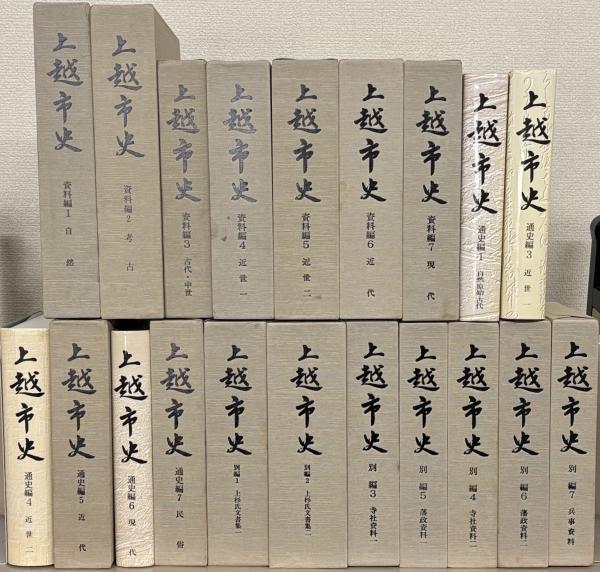 上越市史 資料編1 自然
上越市史 資料編2 考古
上越市史 資料編3 古代・中世
上越市史 資料編4 近世一
上越市史 資料編5 近世二
上越市史 資料編6 近代
上越市史 資料編7 現代
上越市史 通史編1 自然・原始・古代
上越市史 通史編3 近世一
上越市史 通史編4 近世二
上越市史 通史編5 近代
上越市史 通史編6 現代
上越市史 通史編7 民俗
上越市史 別編1 上杉氏文書集一
上越市史 別編2 上杉氏文書集二
上越市史 別編3 寺社資料一
上越市史 別編5 藩政資料一
上越市史 別編4 寺社資料二
上越市史 別編6 藩政資料二
上越市史 別編7 兵事資料